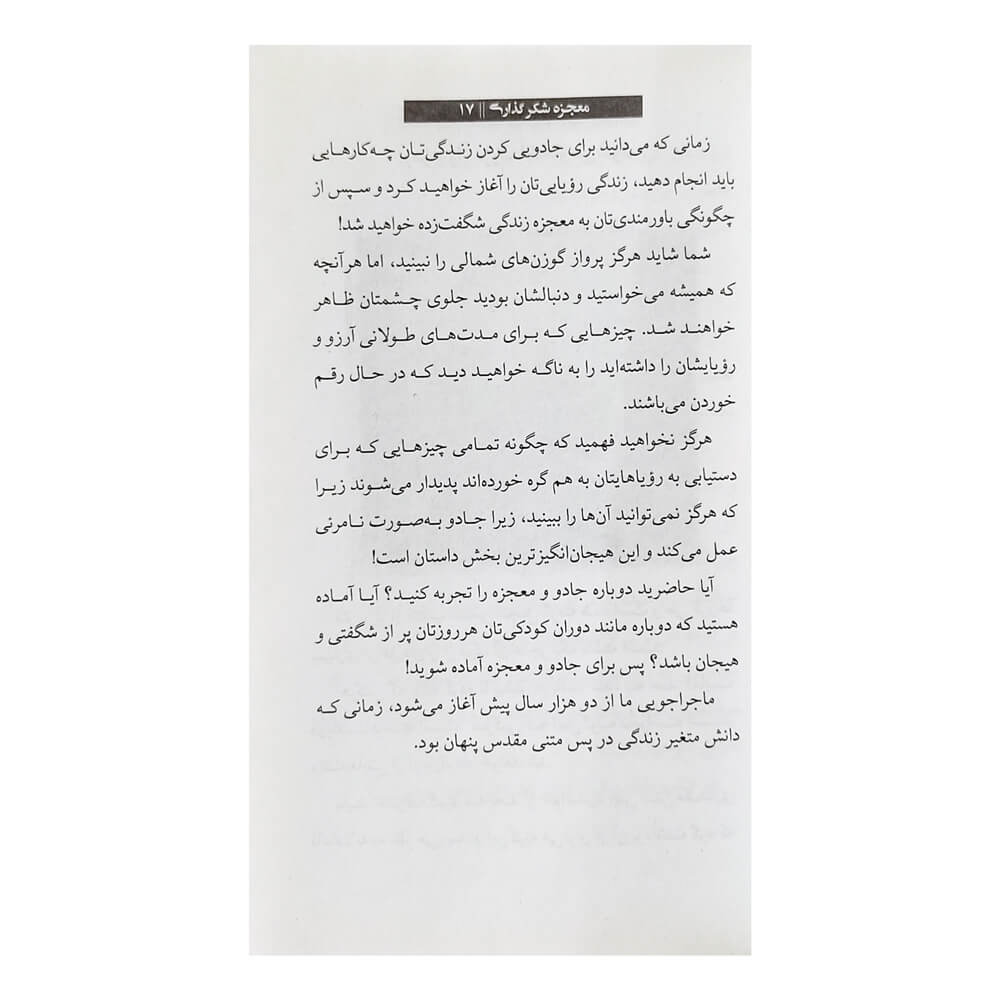 معجزه شکرگذاری || ۱۷
زمانی که می‌دانید برای جادویی کردن زندگی‌تان چه‌کارهایی
باید انجام دهید، زندگی رؤیایی‌تان را آغاز خواهید کرد و سپس از
چگونگی باورمندی‌تان به معجزه زندگی شگفت‌زده خواهید شد!
شما شاید هرگز پرواز گوزن‌های شمالی را نبینید، اما هرآنچه
که همیشه می‌خواستید و دنبالشان بودید جلوی چشمتان ظاهر
خواهند شد. چیزهایی که برای مدت‌های طولانی آرزو و
رؤیایشان را داشته‌اید را به ناگه خواهید دید که در حال رقم
خوردن می‌باشند.
هرگز نخواهید فهمید که چگونه تمامی چیزهایی که برای
دستیابی به رؤیاهایتان به هم گره خورده‌اند پدیدار می‌شوند زیرا
که هرگز نمی‌توانید آن‌ها را ببینید، زیرا جادو به‌صورت نامرئی
عمل می‌کند و این هیجان‌انگیزترین بخش داستان است!
آیا حاضرید دوباره جادو و معجزه را تجربه کنید؟ آیا آماده
هستید که دوباره مانند دوران کودکی‌تان هرروزتان پر از شگفتی و
هیجان باشد؟ پس برای جادو و معجزه آماده شوید!
ماجراجویی ما از دو هزار سال پیش آغاز می‌شود، زمانی که
دانش متغیر زندگی در پس متنی مقدس پنهان بود.